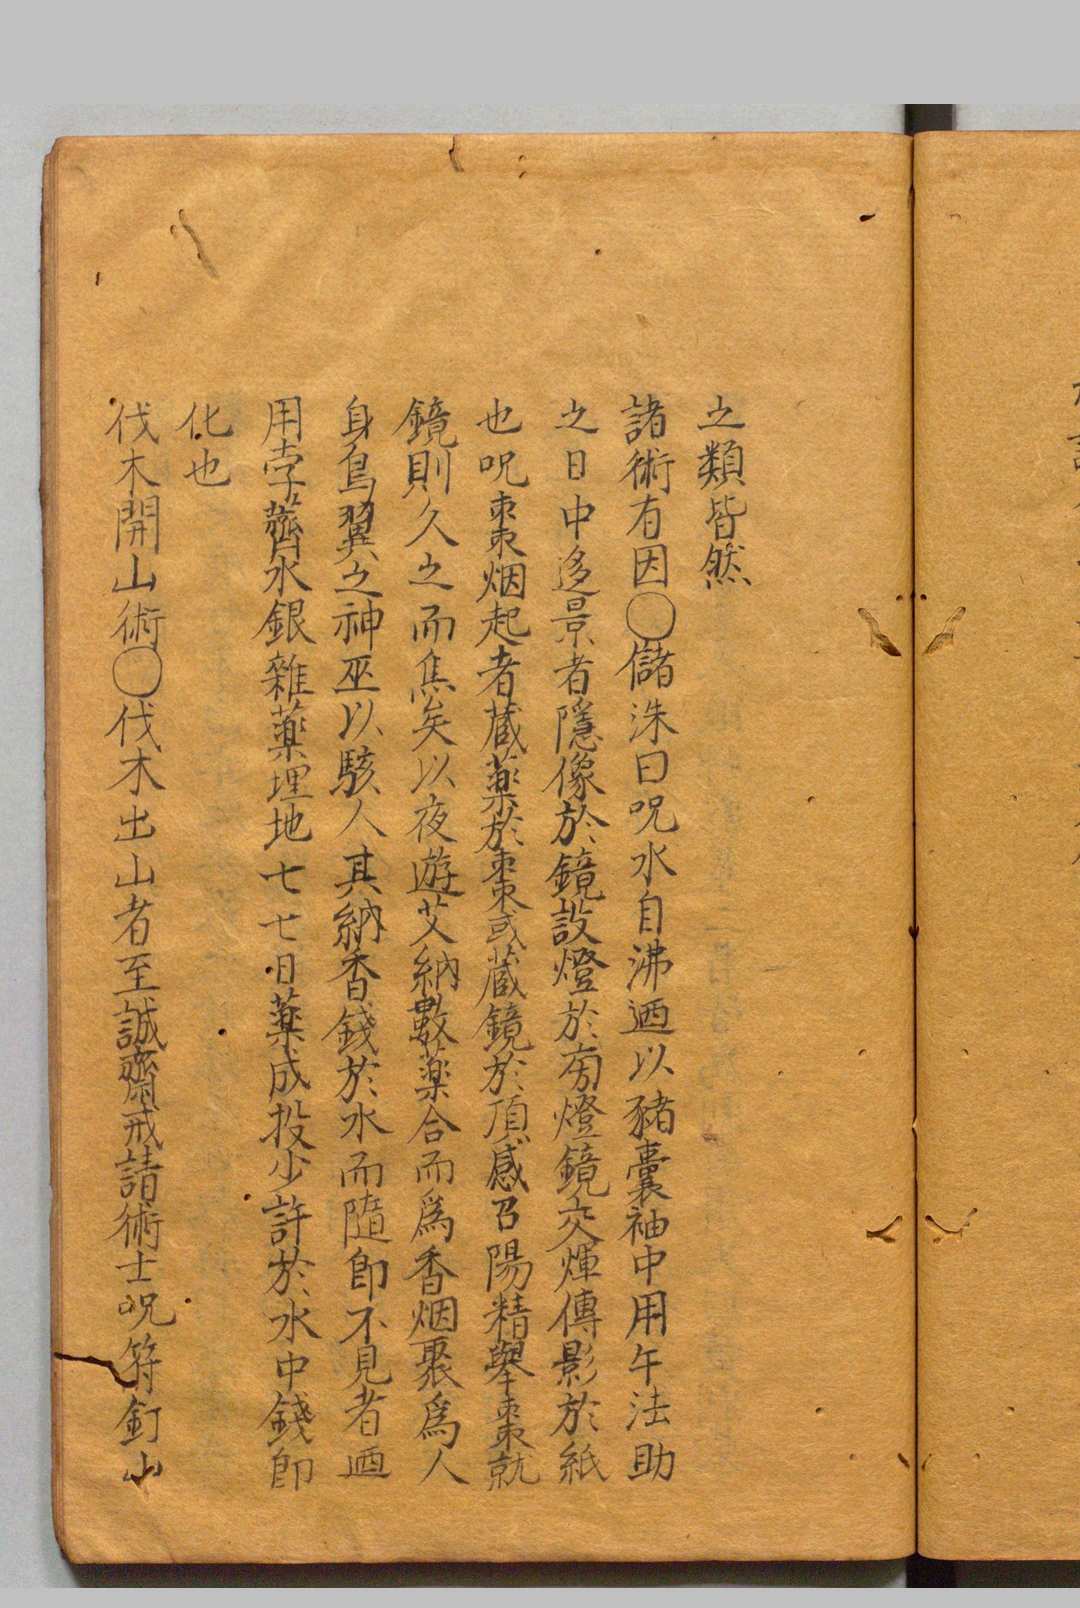 之類皆然
諸術有因〇儲泳曰呪水自沸迺以豬囊袖中用午法助
之日中迻景者隱像於鏡設燈於旁燈鏡交煇傳影於紙
也呪棗烟起者蔵藥於棗或蔵鏡於頂感召陽精舉棗就
鏡則久之而焦矣以夜遊艾納數藥合而爲香烟聚爲人
身鳥翼之神巫以駭人其納香錢於水而隨卽不見者迺
用孛薺水銀雜藥埋地七七日藥成投少許於水中錢卽
化也
伐木開山術〇伐木出山者至誠齋戒請術士呪符釘山